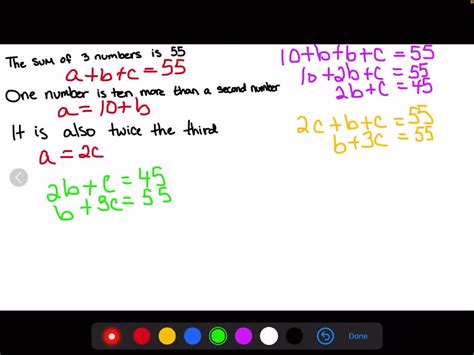 The sum of 3 numbers is 55
a+b+c=55
One number is ten, more than a second number
a=10+b
It is also twice the third
a=2c
2b+c=45
b+3c=55
10+b+b+c=55
10+2b+c=55
2b+c=45
2c+b+c=55
b+3c=55
Done